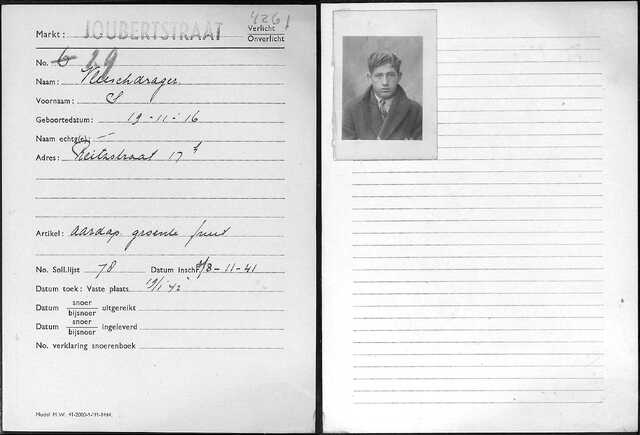 4261
Markt: JOUBERTSTRAAT Verlicht
Onverlicht
No. 6 29
Naam: Vleeschdrager
Voornaam: S
Geboortedatum: 19-11-16
Naam echtg(e): —
Adres: Reitzstraat 17
Artikel: aardap. groente fruit
No. Soll.lijst 78 Datum Inschr. 8-11-41
Datum toek: Vaste plaats 19/1 '42
Datum snoer
bijsnoer uitgereikt
Datum snoer
bijsnoer ingeleverd
No. verklaring snoerenboek
Model M.W.